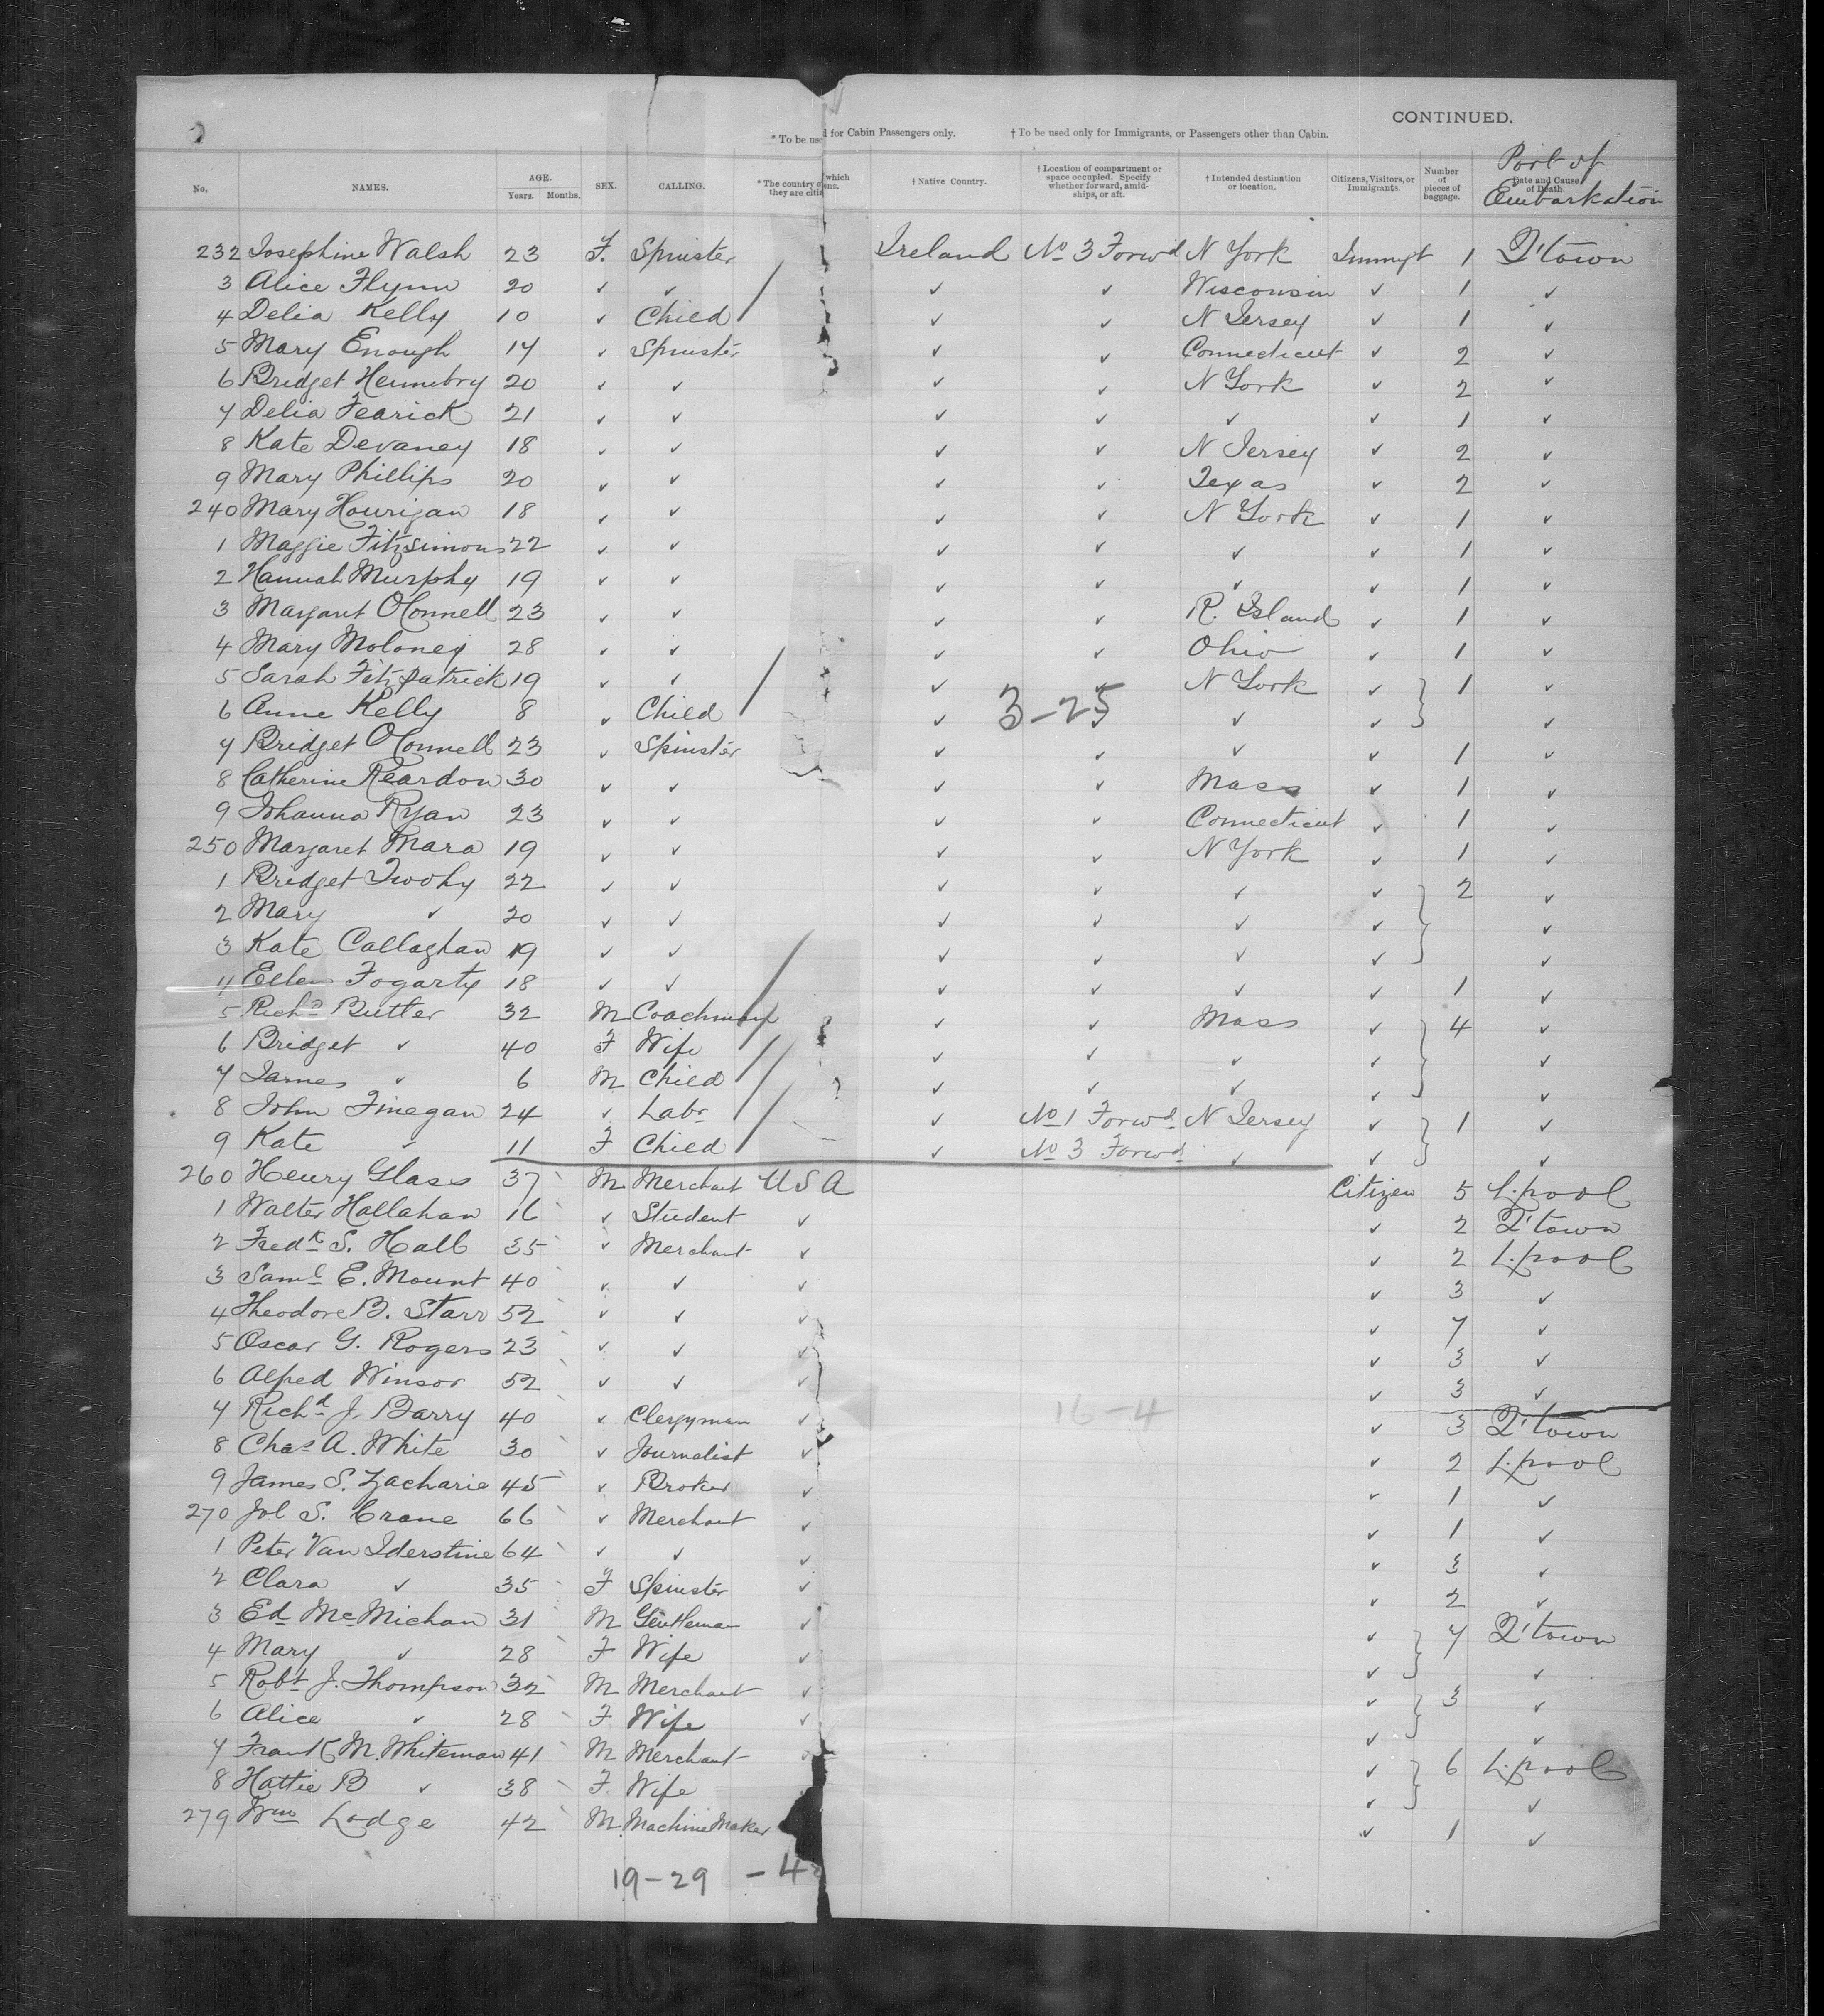 CONTINUED.
* To be used for Cabin Passengers only. † To be used only for Immigrants, or Passengers other than Cabin.
Port of Embarkation
No. NAMES. AGE. Years. Months. SEX. CALLING. * The country of which they are citizens. † Native Country. † Location of compartment or space occupied. Specify whether forward, amidships, or aft. † Intended destination or location. Citizens, Visitors, or Immigrants. Number of pieces of baggage. Date and Cause of Death.
232 Josephine Walsh 23 F. Spinster Ireland No 3 Forwd N York Immigt 1 Q'town
3 Alice Flynn 20 ✓ ✓ / ✓ ✓ Wisconsin ✓ 1 ✓
4 Delia Kelly 10 ✓ Child ✓ ✓ N Jersey ✓ 1 ✓
5 Mary Enough 14 ✓ Spinster ✓ ✓ Connecticut ✓ 2 ✓
6 Bridget Hennebry 20 ✓ ✓ ✓ ✓ N York ✓ 2 ✓
7 Delia Fearick 21 ✓ ✓ ✓ ✓ ✓ ✓ 1 ✓
8 Kate Devaney 18 ✓ ✓ ✓ ✓ N Jersey ✓ 2 ✓
9 Mary Phillips 20 ✓ ✓ ✓ ✓ Texas ✓ 2 ✓
240 Mary Hourigan 18 ✓ ✓ ✓ ✓ N York ✓ 1 ✓
1 Maggie Fitzsimons 22 ✓ ✓ ✓ ✓ ✓ ✓ 1 ✓
2 Hannah Murphy 19 ✓ ✓ ✓ ✓ ✓ ✓ 1 ✓
3 Margaret OConnell 23 ✓ ✓ ✓ ✓ R. Island ✓ 1 ✓
4 Mary Moloney 28 ✓ ✓ ✓ ✓ Ohio ✓ 1 ✓
5 Sarah Fitzpatrick 19 ✓ ✓ / ✓ ✓ N York ✓ } 1 ✓
3-25
6 Anne Kelly 8 ✓ Child ✓ ✓ ✓ ✓ ✓
7 Bridget OConnell 23 ✓ Spinster ✓ ✓ ✓ ✓ 1 ✓
8 Catherine Reardon 30 ✓ ✓ ✓ ✓ Mass ✓ 1 ✓
9 Johanna Ryan 23 ✓ ✓ ✓ ✓ Connecticut ✓ 1 ✓
250 Margaret Mara 19 ✓ ✓ ✓ ✓ N York ✓ 1 ✓
1 Bridget Twohy 22 ✓ ✓ ✓ ✓ ✓ ✓ } 2 ✓
2 Mary ✓ 20 ✓ ✓ ✓ ✓ ✓ ✓ ✓
3 Kate Callaghan 19 ✓ ✓ ✓ ✓ ✓ ✓ ✓
4 Ellen Fogarty 18 ✓ ✓ / ✓ ✓ ✓ ✓ 1 ✓
5 Richd Butler 32 M Coachman ✓ ✓ Mass ✓ } 4 ✓
6 Bridget ✓ 40 F Wife // ✓ ✓ ✓ ✓ ✓
7 James ✓ 6 M Child // ✓ ✓ ✓ ✓ ✓
8 John Finegan 24 ✓ Labr / ✓ No 1 Forwd N Jersey ✓ } 1 ✓
9 Kate ✓ 11 F Child / ✓ No 3 Forwd ✓ ✓ ✓
260 Henry Glass 37 M Merchant USA Citizen 5 L.pool
1 Walter Hallahan 16 ✓ Student ✓ ✓ 2 Q'town
2 Fredk S. Hall 35 ✓ Merchant ✓ ✓ 2 L.pool
3 Saml E. Mount 40 ✓ ✓ ✓ ✓ 3 ✓
4 Theodore B. Starr 52 ✓ ✓ ✓ ✓ 7 ✓
5 Oscar G. Rogers 23 ✓ ✓ ✓ ✓ 3 ✓
6 Alfred Winsor 52 ✓ ✓ ✓ ✓ 3 ✓
16-4
7 Richd J. Barry 40 ✓ Clergyman ✓ ✓ 3 Q'town
8 Chas A. White 30 ✓ Journalist ✓ ✓ 2 L.pool
9 James S. Zacharie 45 ✓ Broker ✓ ✓ 1 ✓
270 Job S. Crane 66 ✓ Merchant ✓ ✓ 1 ✓
1 Peter Van Iderstine 64 ✓ ✓ ✓ ✓ 3 ✓
2 Clara ✓ 35 F Spinster ✓ ✓ 2 ✓
3 Ed McMichan 31 M Gentleman ✓ ✓ } 7 Q'town
4 Mary ✓ 28 F Wife ✓ ✓ ✓
5 Robt J. Thompson 32 M Merchant ✓ ✓ } 3 ✓
6 Alice ✓ 28 F Wife ✓ ✓ ✓
7 Frank M. Whiteman 41 M Merchant ✓ } 6 L.pool
8 Hattie B ✓ 38 F Wife ✓ ✓
279 Wm Lodge 42 M Machine Maker ✓ 1 ✓
19-29 -4